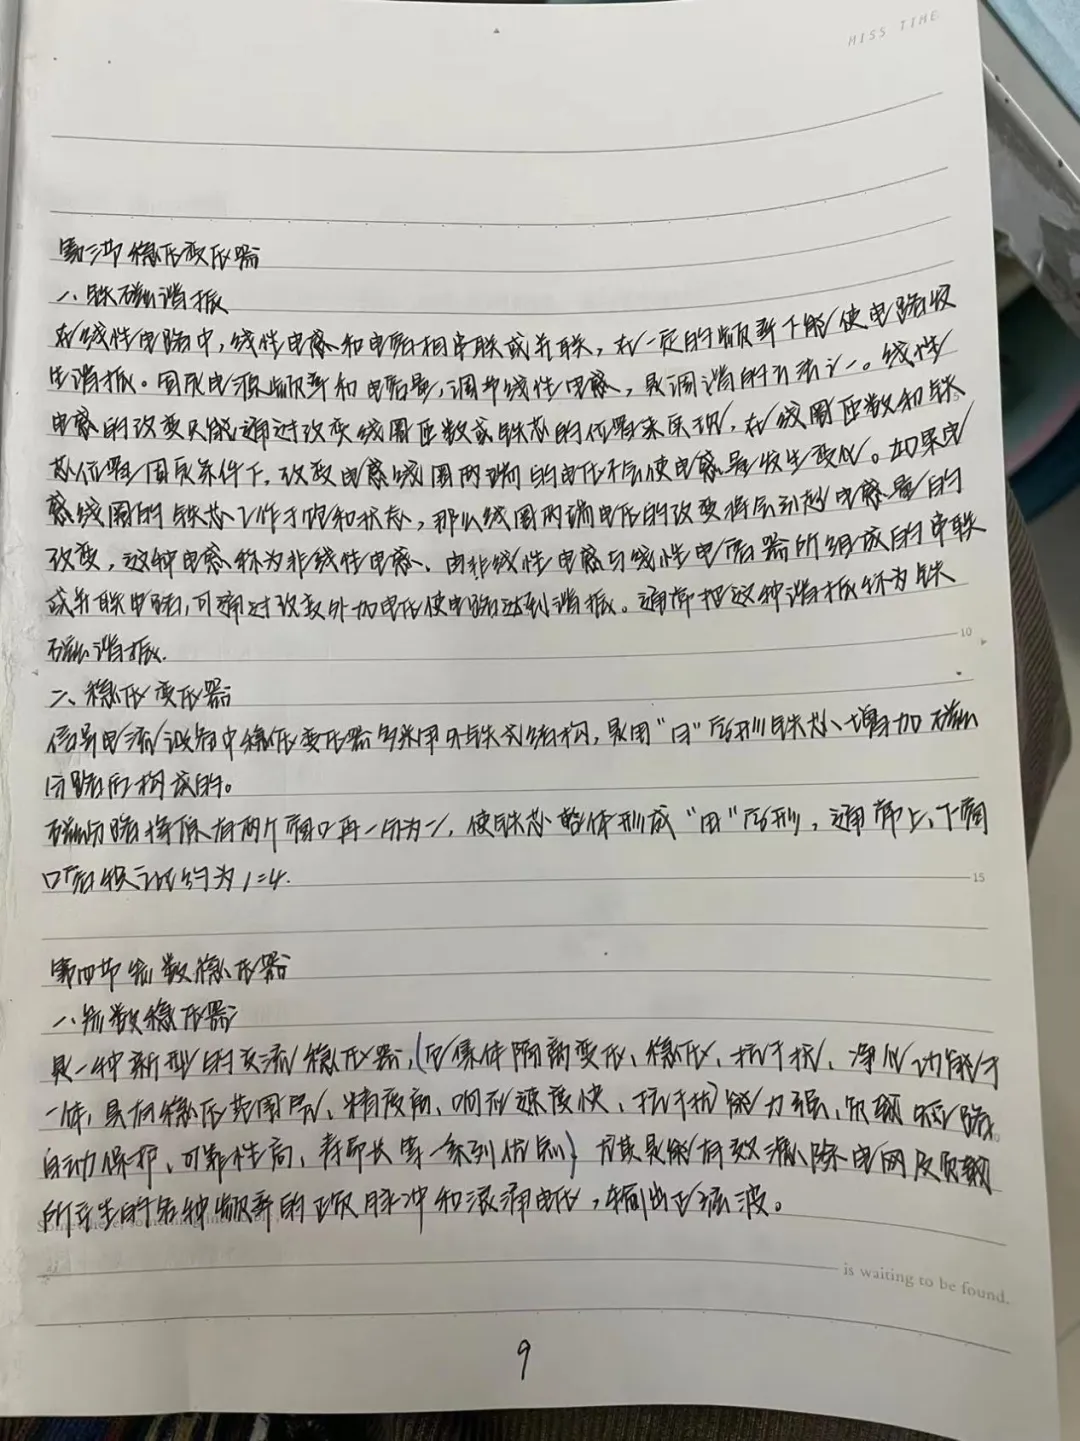 MISS TIME
第三节 稳压变压器
一、铁磁谐振
在线性电路中，线性电感和电容相串联或并联，在一定的频率下能使电路发
生谐振。固定电源频率和电容量，调节线性电感，是调谐的方法之一。线性
电感的改变只能通过改变线圈匝数或铁芯的位置来实现，在线圈匝数和铁
芯位置固定条件下，改变电感线圈两端的电压不会使电感量发生变化。如果电
感线圈的铁芯工作于饱和状态，那么线圈两端电压的改变将会引起电感量的
改变，这种电感称为非线性电感、由非线性电感与线性电容器所组成的串联
或并联电路，可通过改变外加电压使电路达到谐振。通常把这种谐振称为铁
磁谐振.
10
二、稳压变压器
信号电流设备中稳压变压器多采用外铁式结构，是用“日”字形铁芯增加磁
分路后构成的。
磁分路将原有两个窗口再一分为二，使铁芯整体形成“田”字形，通常上、下窗
口面积之比约为1=4.
15
第四节 参数稳压器
一、参数稳压器
是一种新型的交流稳压器，(它集体隔离变压、稳压、抗干扰、净化功能于
一体，具有稳压范围宽、精度高、响应速度快、抗干扰能力强、负载短路
自动保护、可靠性高、寿命长等一系列优点) 尤其是能有效消除电网及负载
所产生的各种频率的正负脉冲和浪涌电压，输出正弦波。
is waiting to be found.
9